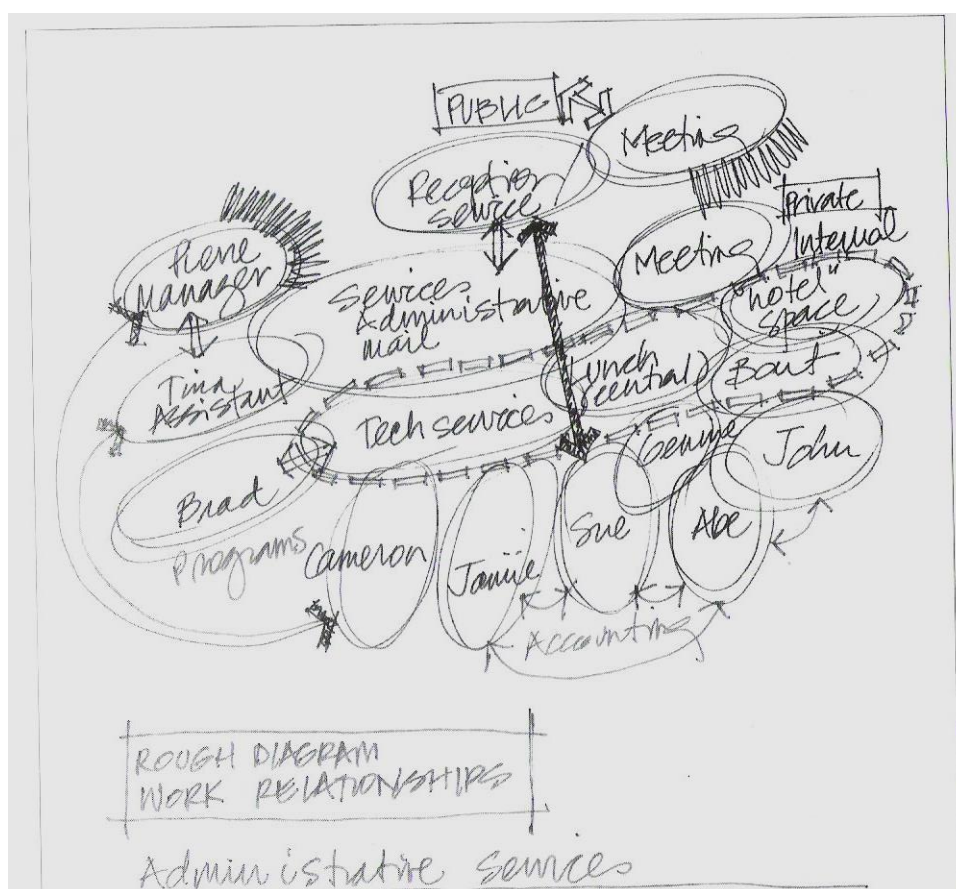 PUBLIC
Meeting
Reception
service
Private
Internal
Pierre
Manager
Meeting
Services
Administrative
mail
"hotel"
space
Tina
Assistant
Lunch
central
Bout
Tech services
Genny
John
Brad
Sue
Abe
Programs
Cameron
Jamie
Accounting
ROUGH DIAGRAM
WORK RELATIONSHIPS
Administrative Services